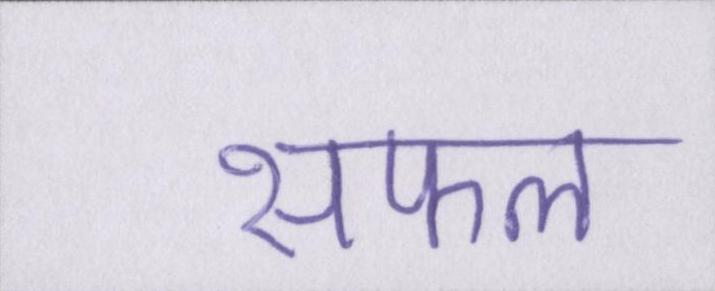 सफल